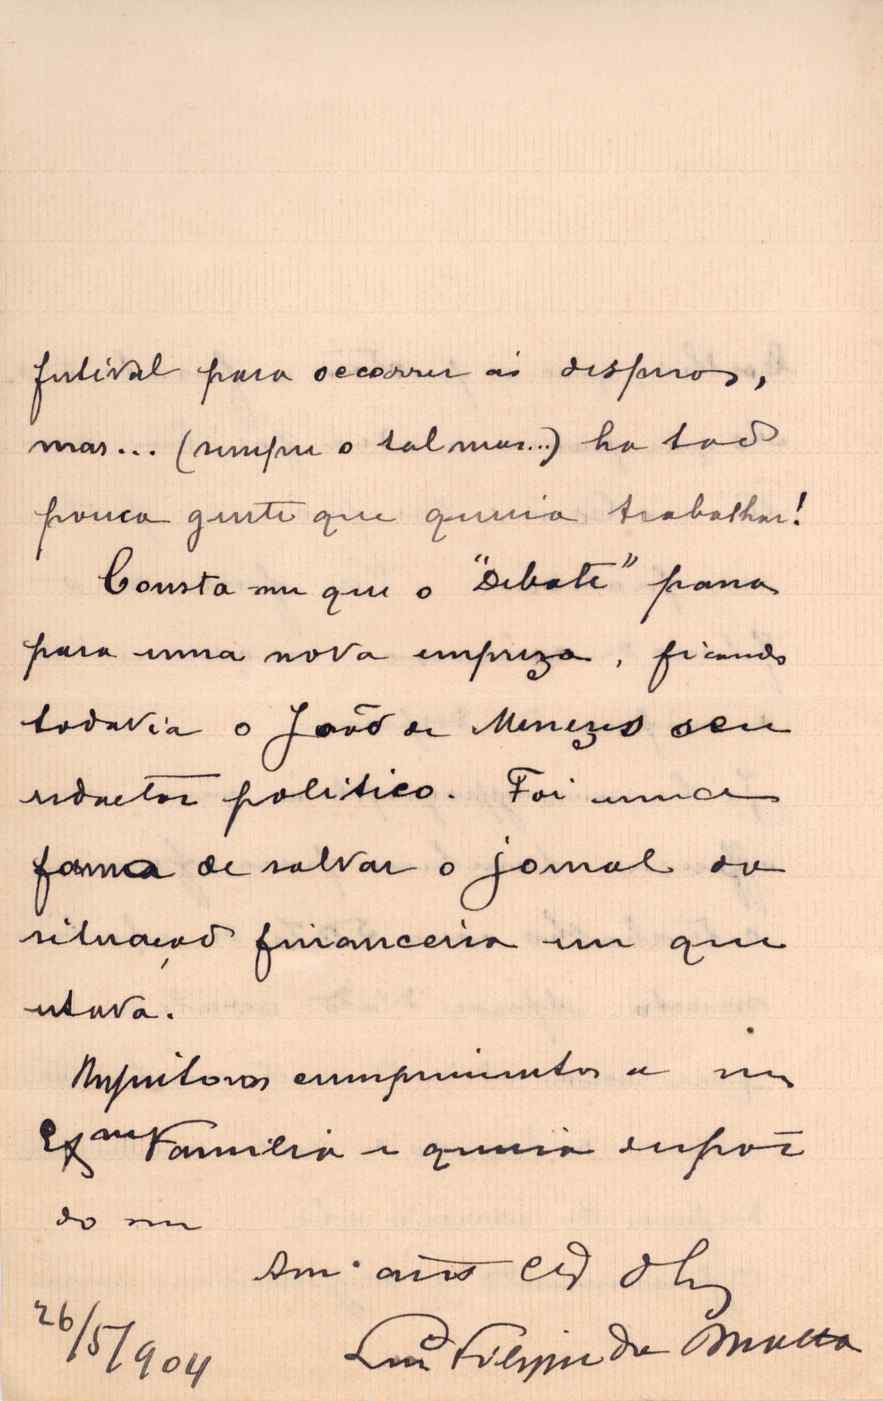 festival para occorrer ás despezas,
mas... (sempre o tal mas...) ha taõ
pouca gente que queira trabalhar!
Consta-me que o "Debate" passa
para uma nova empreza, ficando
todavia o João de Menezes seu
redactor politico. Foi uma
forma de salvar o jornal da
situação financeira em que
estava.
Respeitosos cumprimentos a sua
Exma Familia e queira dispôr
do seu
Am.º
Luiz Filippe da Matta
26/5/904